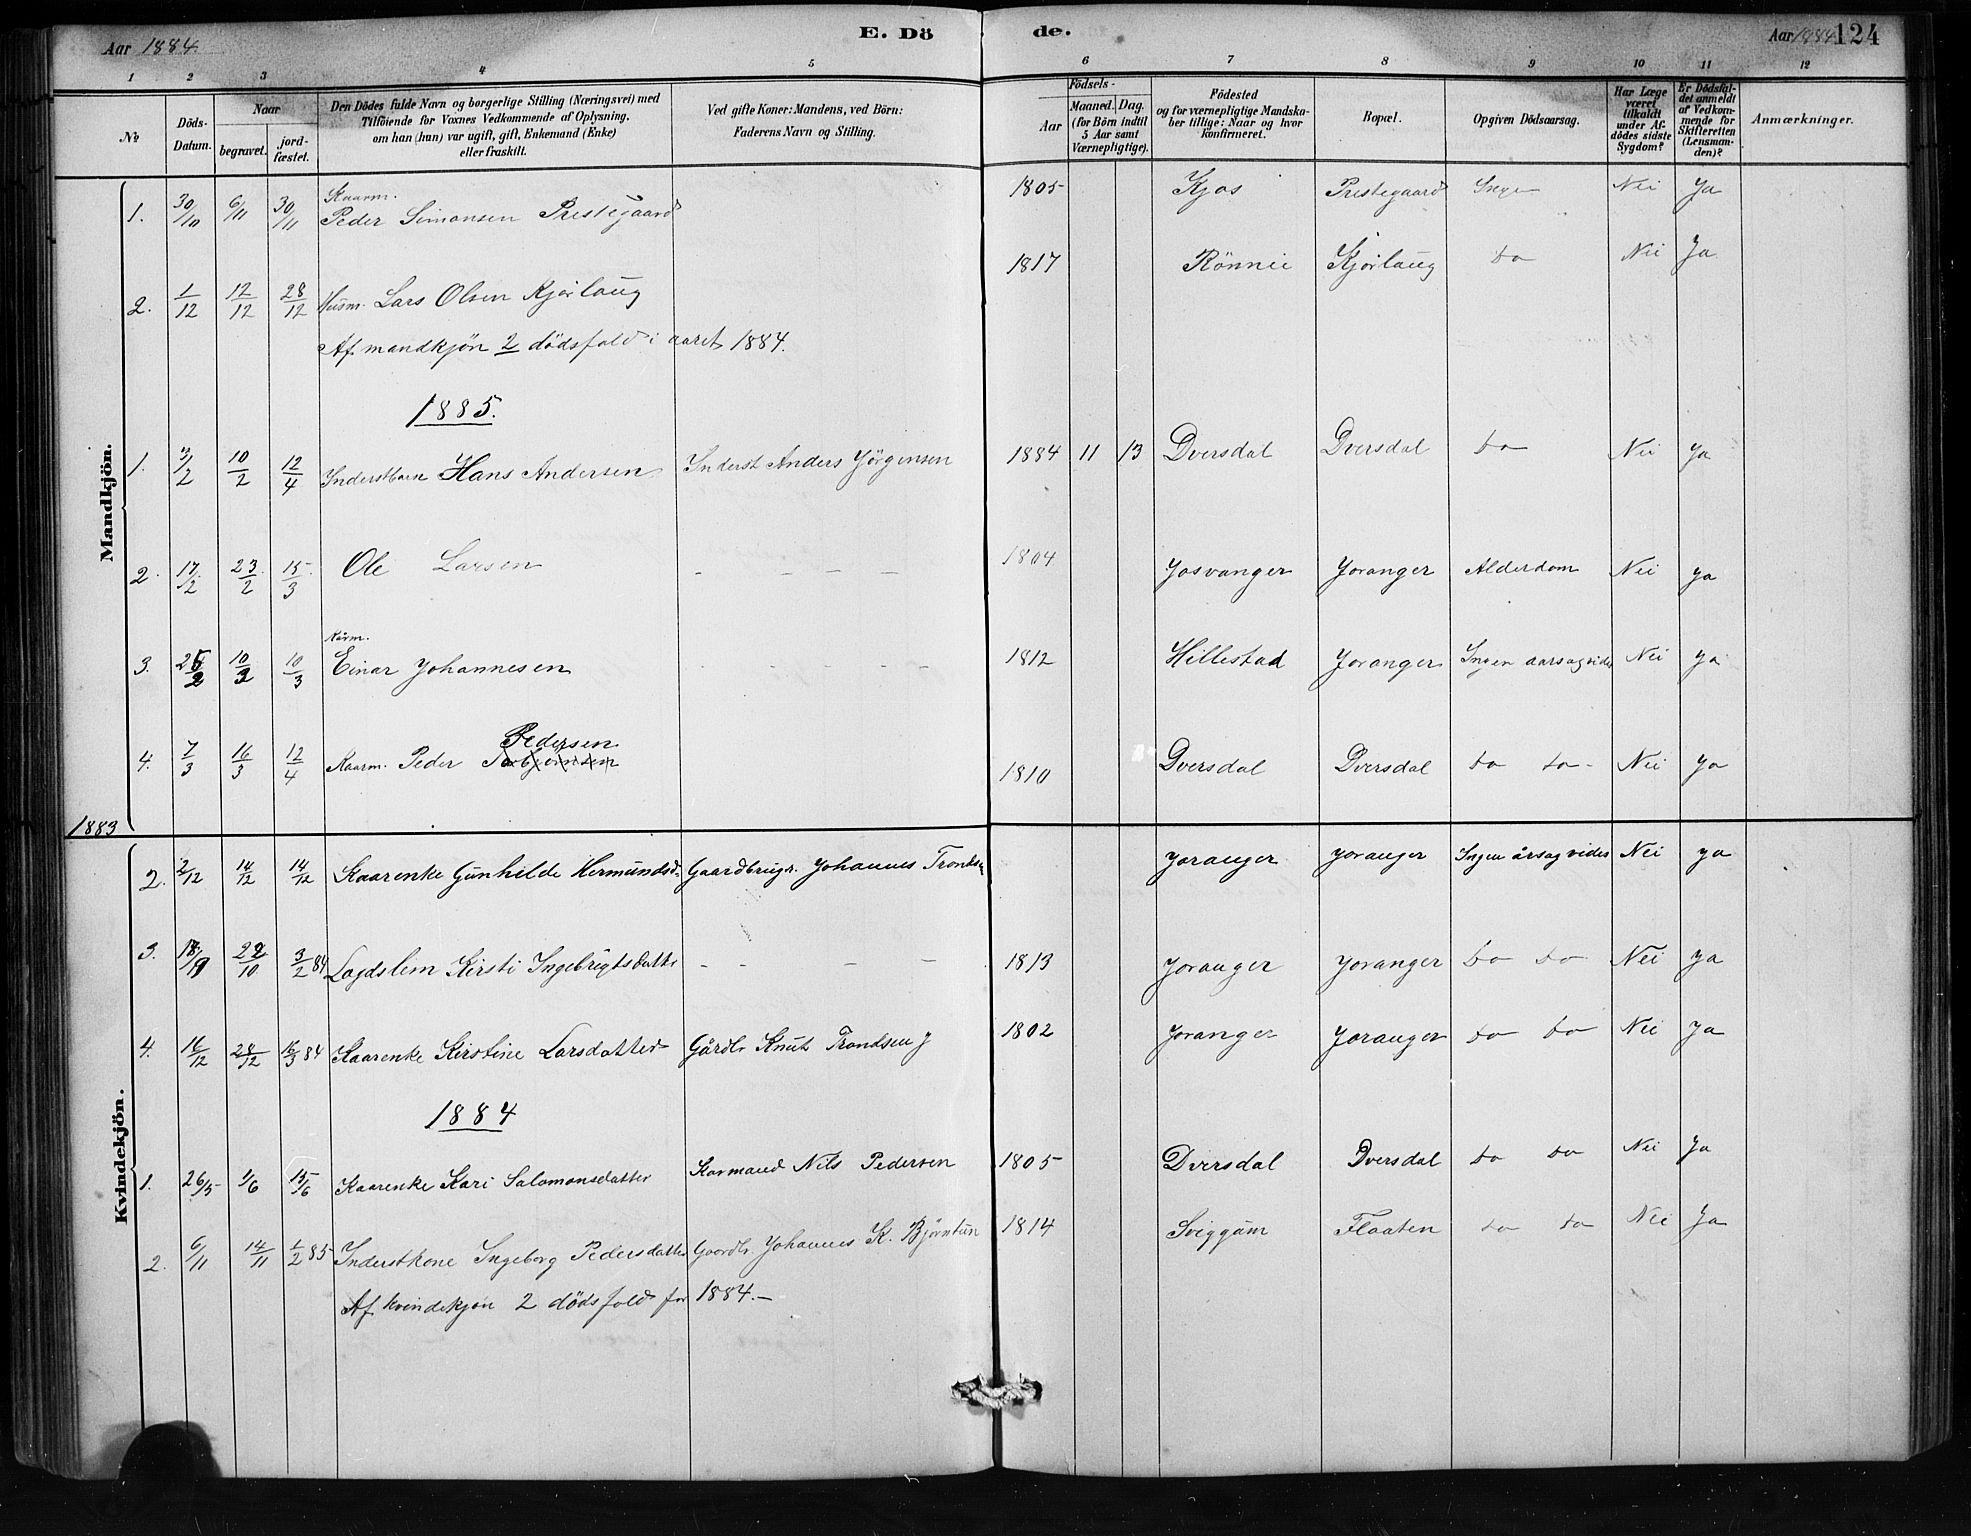 Aar 1884. E. Dö de. Aar 1884 124
1 2 3 4 5 6 7 8 9 10 11 12
No Döds-Datum. Naar begravet. jord-fæstet. Den Dödes fulde Navn og borgerlige Stilling (Næringsvei) med Tilföiende for Voxnes Vedkommende af Oplysning, om han (hun) var ugift, gift, Enkemand (Enke) eller fraskilt. Ved gifte Koner: Mandens, ved Börn: Faderens Navn og Stilling. Födsels- Aar Maaned. Dag. (for Börn indtil 5 Aar samt Værnepligtige). Födested og for værnepligtige Mandskaber tillige: Naar og hvor konfirmeret. Bopæl. Opgiven Dödsaarsag. Har Læge været tilkaldt under Afdödes sidste Sygdom? Er Dödsfaldet anmeldt af Vedkommende for Skifteretten (Lensmanden)? Anmærkninger.
Mandkjön.
1. 30/10 6/11 30/11 Kaarm. Peder Simonsen Prestegaard 1805 Kjos Prestegaard Nei Ja
2. 1/12 12/12 28/12 Husm. Lars Olsen Kjørlaug 1817 Rönnei Kjørlaug do Nei Ja
Af mandkjön 2 dödsfald i aaret 1884.
1885.
1. 3/2 10/2 12/4 Inderstbarn Hans Andersen Inderst Anders Jörgensen 1884 11 13 Dversdal Dversdal do Nei Ja
2. 17/2 23/2 15/3 Ole Larsen - - - - 1804 Josvanger Joranger Alderdom Nei ja
3. 25/2 10/3 10/3 Kårm. Einar Johannesen - - - - 1812 Hillestad Joranger Ingen aarsag vides Nei ja
4. 7/3 16/3 12/4 Kaarm. Peder Torbjörnsen Pedersen 1810 Dversdal Dversdal do do - Nei ja
1883
Kvindekjön.
2. 2/12 14/12 14/12 Kaarenke Gunhilde Hermundsd. Gaardbrugr. Johannes Tronds Joranger Joranger Ingen årsag vides Nei ja
3. 18/9 22/10 3/2 84 Lægdslem Kirsti Ingebrigtsdatte - - - - 1813 Joranger Joranger do do Nei ja
4. 16/12 28/12 16/3 84 Kaarenke Kirstine Larsdatter Gårdbr Knut Trondsen J 1802 Joranger Joranger do do Nei Ja
1884
1. 26/5 1/6 15/6 Kaarenke Kari Salomonsdatter Karmand Nils Pedersen 1805 Dversdal Dversdal do do Nei Ja
2. 6/11 14/11 1/2 85 Inderstkone Ingeborg Pedersdatter Gaardbr. Johannes K. Björntun 1814 Sviggum Flaaten do do Nei Ja
Af kvindekjön 2 dödsfald for 1884.-